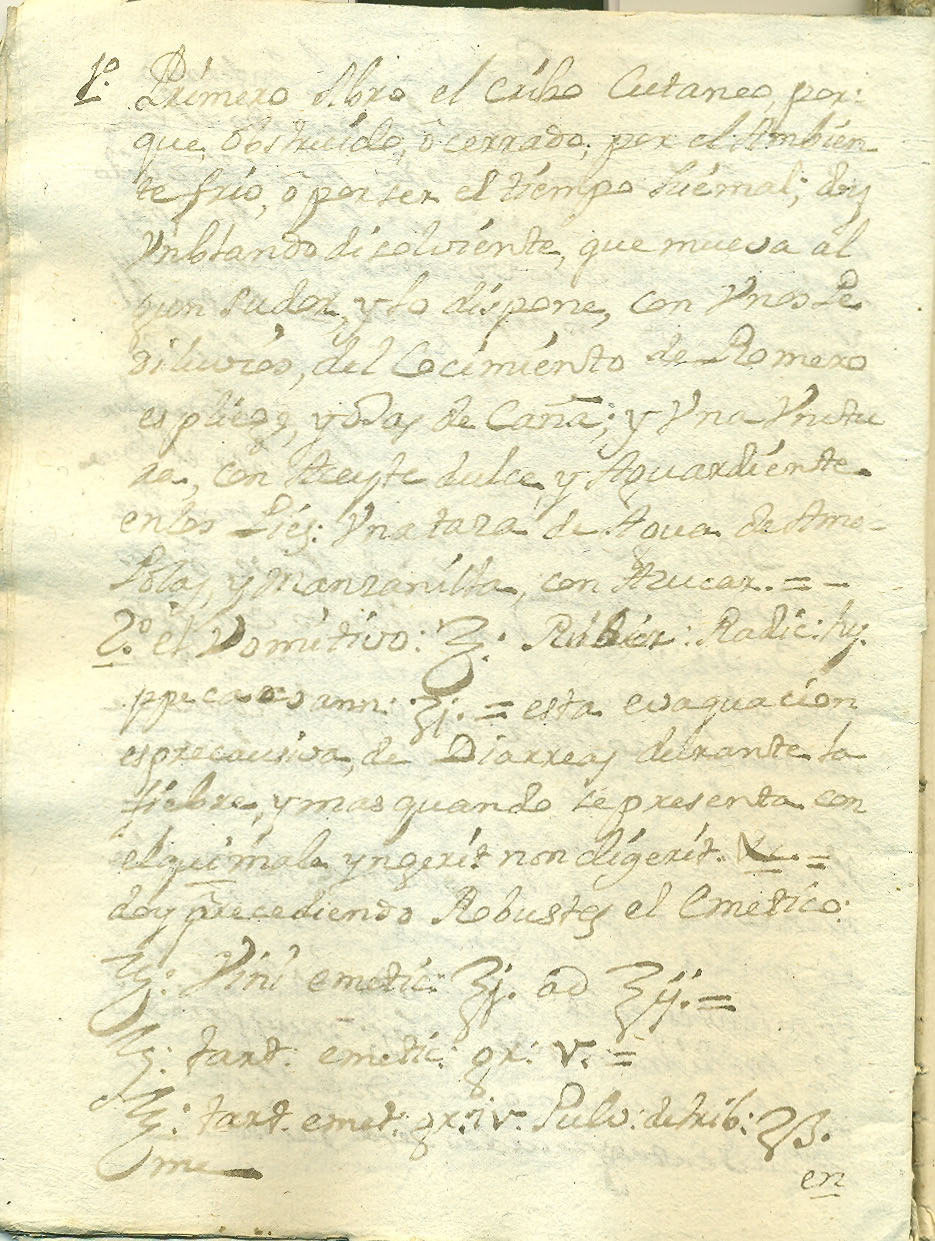 1.º Primero Abro el Cribo Cutaneo, por:
que, obstruído, ò cerrado, por el Ambien
te frío, ò por ser el tíempo hiémal; doy
Vn blando disolviente, que mueva al
gun sudor, y lo dispone, con Vnos Pe
diluvios, del Cocimiento de Romero
espliego, y ojas de Caña; y Vna Vntu
ra, con Azeyte dulce, y Aguardiente
en los Pies: Vna taza de Agua de Amo-
polas, y Manzanilla, con Azucar. = -
2.º el Vomitivo: Radic: hy.
ppecacoann: ʒj. = esta evaquacion
es precausiva, de Diarreas durante la
fiebre, y mas quando se presenta con
el quimale yngerit non digerit. =
doy precediendo Robustes el Emetico:
℞: Vini emetic: ʒj. ad ʒij. =
℞: tart. emetic: gr: v. =
℞: tart. emet: gr: iv. Pulv: de trib: ʒß.
me
en